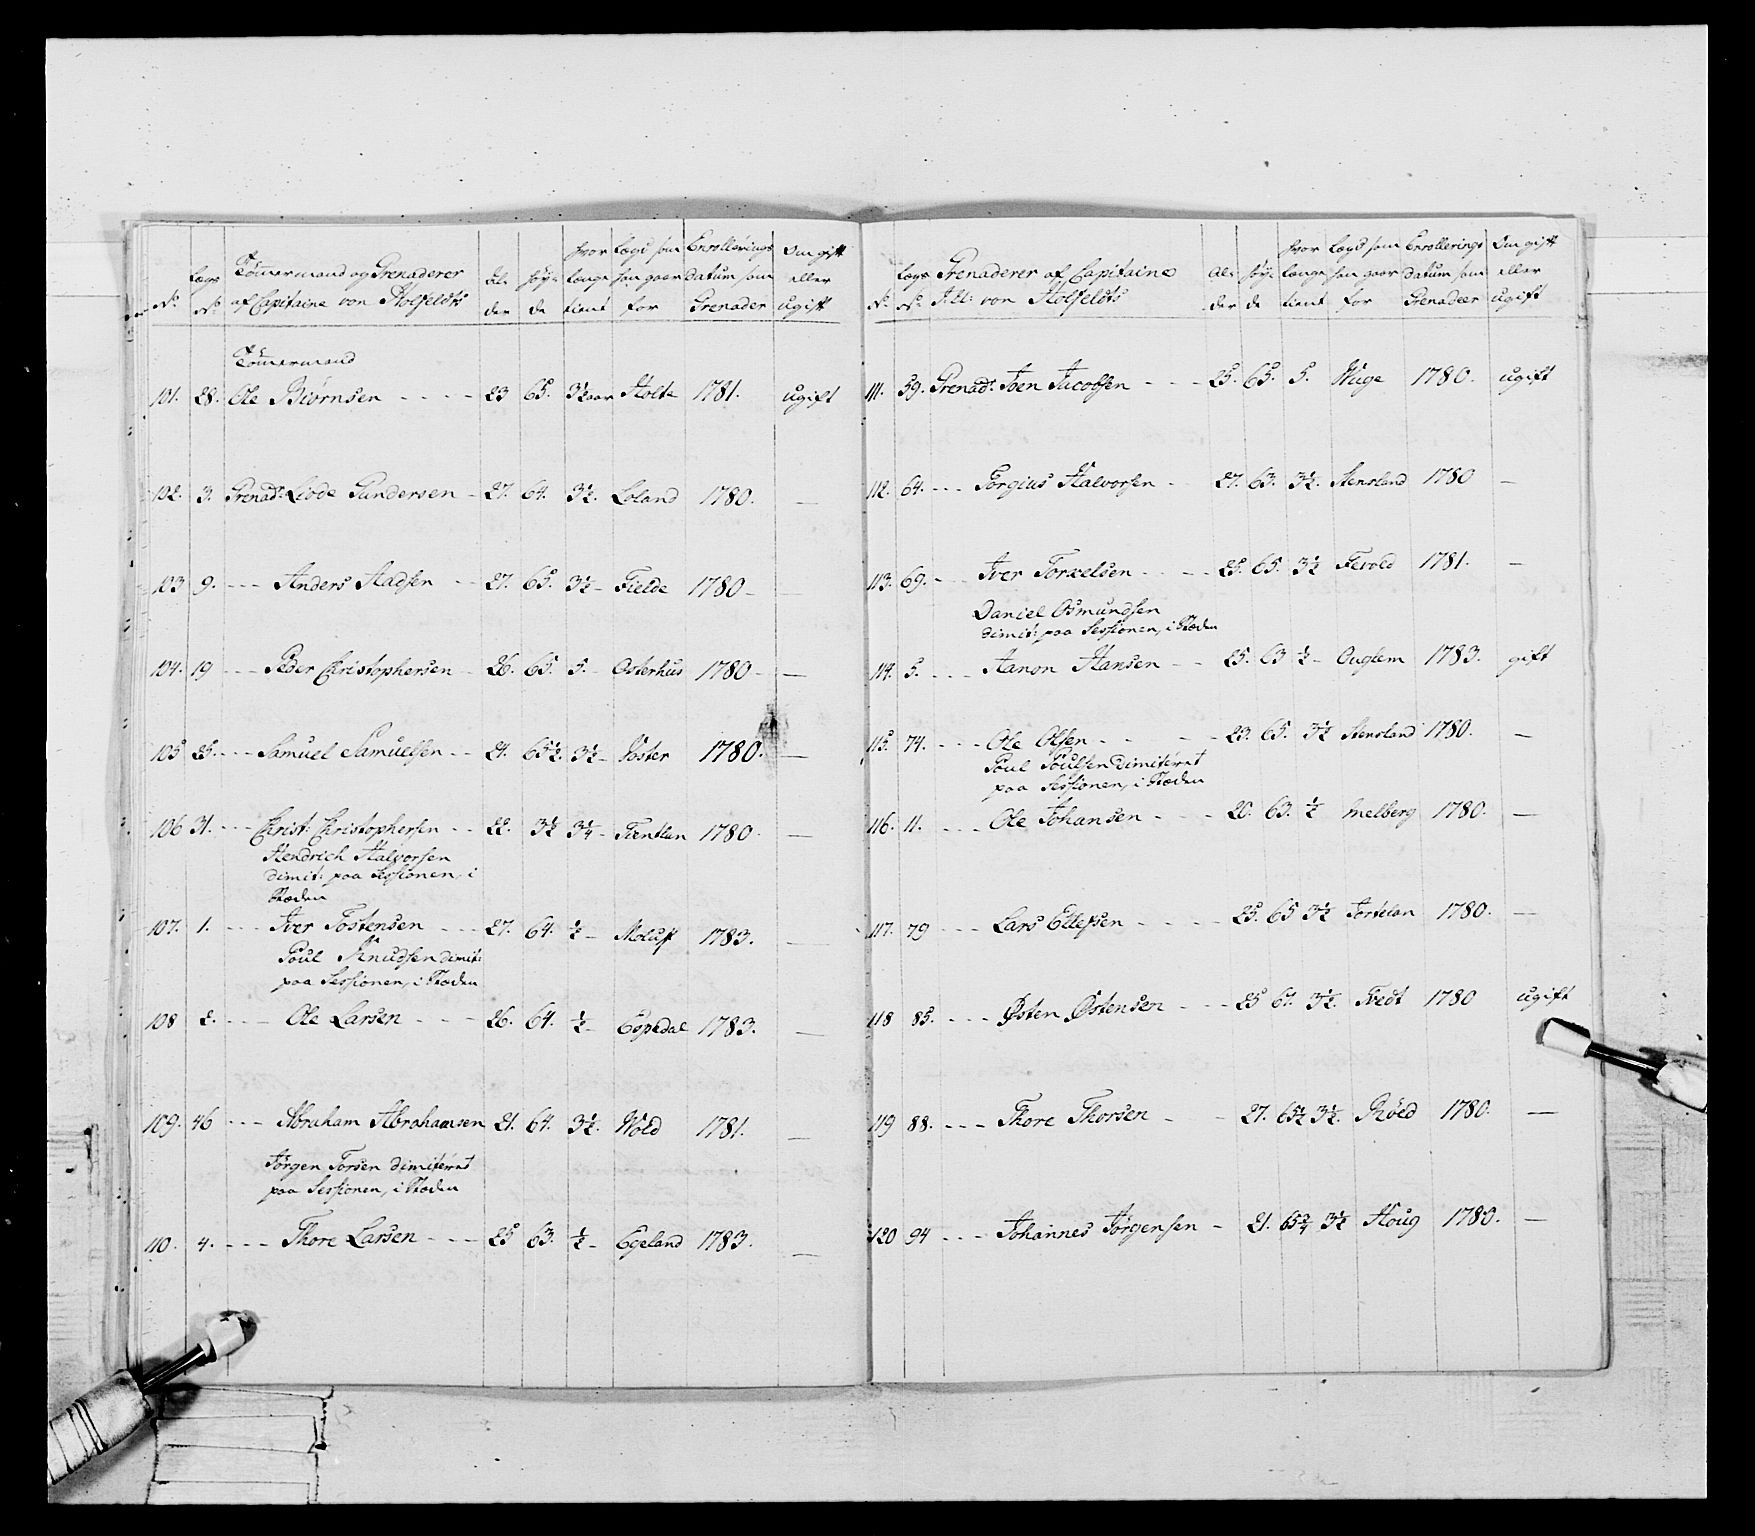 No. Lægs No. Tömermand og Grenaderer af Capitaine von Holfeldts Al- der Høy- de hvor længe tient Lægd som han gaar for Enrollerings datum som Grenader Om gift eller ugift
Tömermand
101. 28. Ole Biørnsen - - - - 23 65. 3½ aar Holte 1781. ugift
102. 3. Grenad: Livde Gundersen - 27. 64. 3½. Loland 1780. —
103 9. - - - Anders Aadsen - - 27. 65. 3½ - Fielde 1780 - —
104. 19 - - - Peder Christophersen - 26. 65. 5. - Osterhus 1780 - —
105 25. - - - Samuel Samuelsen - - 24. 65½. 3½ - Voster 1780. —
106 31. - - - Christ: Christophersen - - 22. 3½ 3¼ - Tientlan 1780. —
Hendrich Halvorsen
dimit: paa Sessionen, i
Stæden
107. 1. - - - Iver Tostensen - - - 27. 64. ½ - Moluft 1783. —
Poul Knudsen dimit:
paa Sessionen, i Stæden
108 2. - - - Ole Larsen - - - 26. 64. ½ - Espedal 1783. —
109. 46 - - - Abraham Abrahamsen 21. 64. 3½. Wold 1781. —
Jørgen Torsen dimiteret
paa Sessionen, i Stæden
110. 4. - - - Thore Larsen - - - 25 63. ½ - Egeland 1783. —
No. Lægs No. Grenaderer af Capitaine J: U: von Holfeldts Al- der Høy- de hvor længe tient Lægd som han gaar for Enrollerings datum som Grenadeer Om gift eller ugift
111. 59. Grenad: Iven Jacobsen - - - 25. 65. 5. Wuge 1780. ugift
112. 64. - - - Gorgius Halvorsen - 27. 63. 3½. Stensland 1780 —
113. 69. - - - Iver Torkelsen - - - - 25. 65. 3½ Fevold 1781. —
Daniel Osmundsen
dimit: paa Sessionen, i Stæden
114. 5. - - - Aanon Hansen - - 25. 63 ½ - Ouglem 1783. gift
115. 74. - - - Ole Olsen - - - - 23. 65. 3½ Stensland 1780. —
Poul Poulsen dimiteret
paa Sessionen, i Stæden
116. 11. - - - Ole Johansen - - - 20. 63. ½ Melberg 1780. —
117. 79 - - - Lars Ellefsen - - - - 25. 65 3½ Tortelan 1780. —
118 85. - - - Østen Østensen - - - 25 67. 3½. Tvedt 1780 ugift
119 88. - - - Thore Thorsen - - 27. 65½ 3½. Röed 1780. —
120 94 - - - Johannes Jørgensen - 21. 65¾ 3½ Houg 1780. —